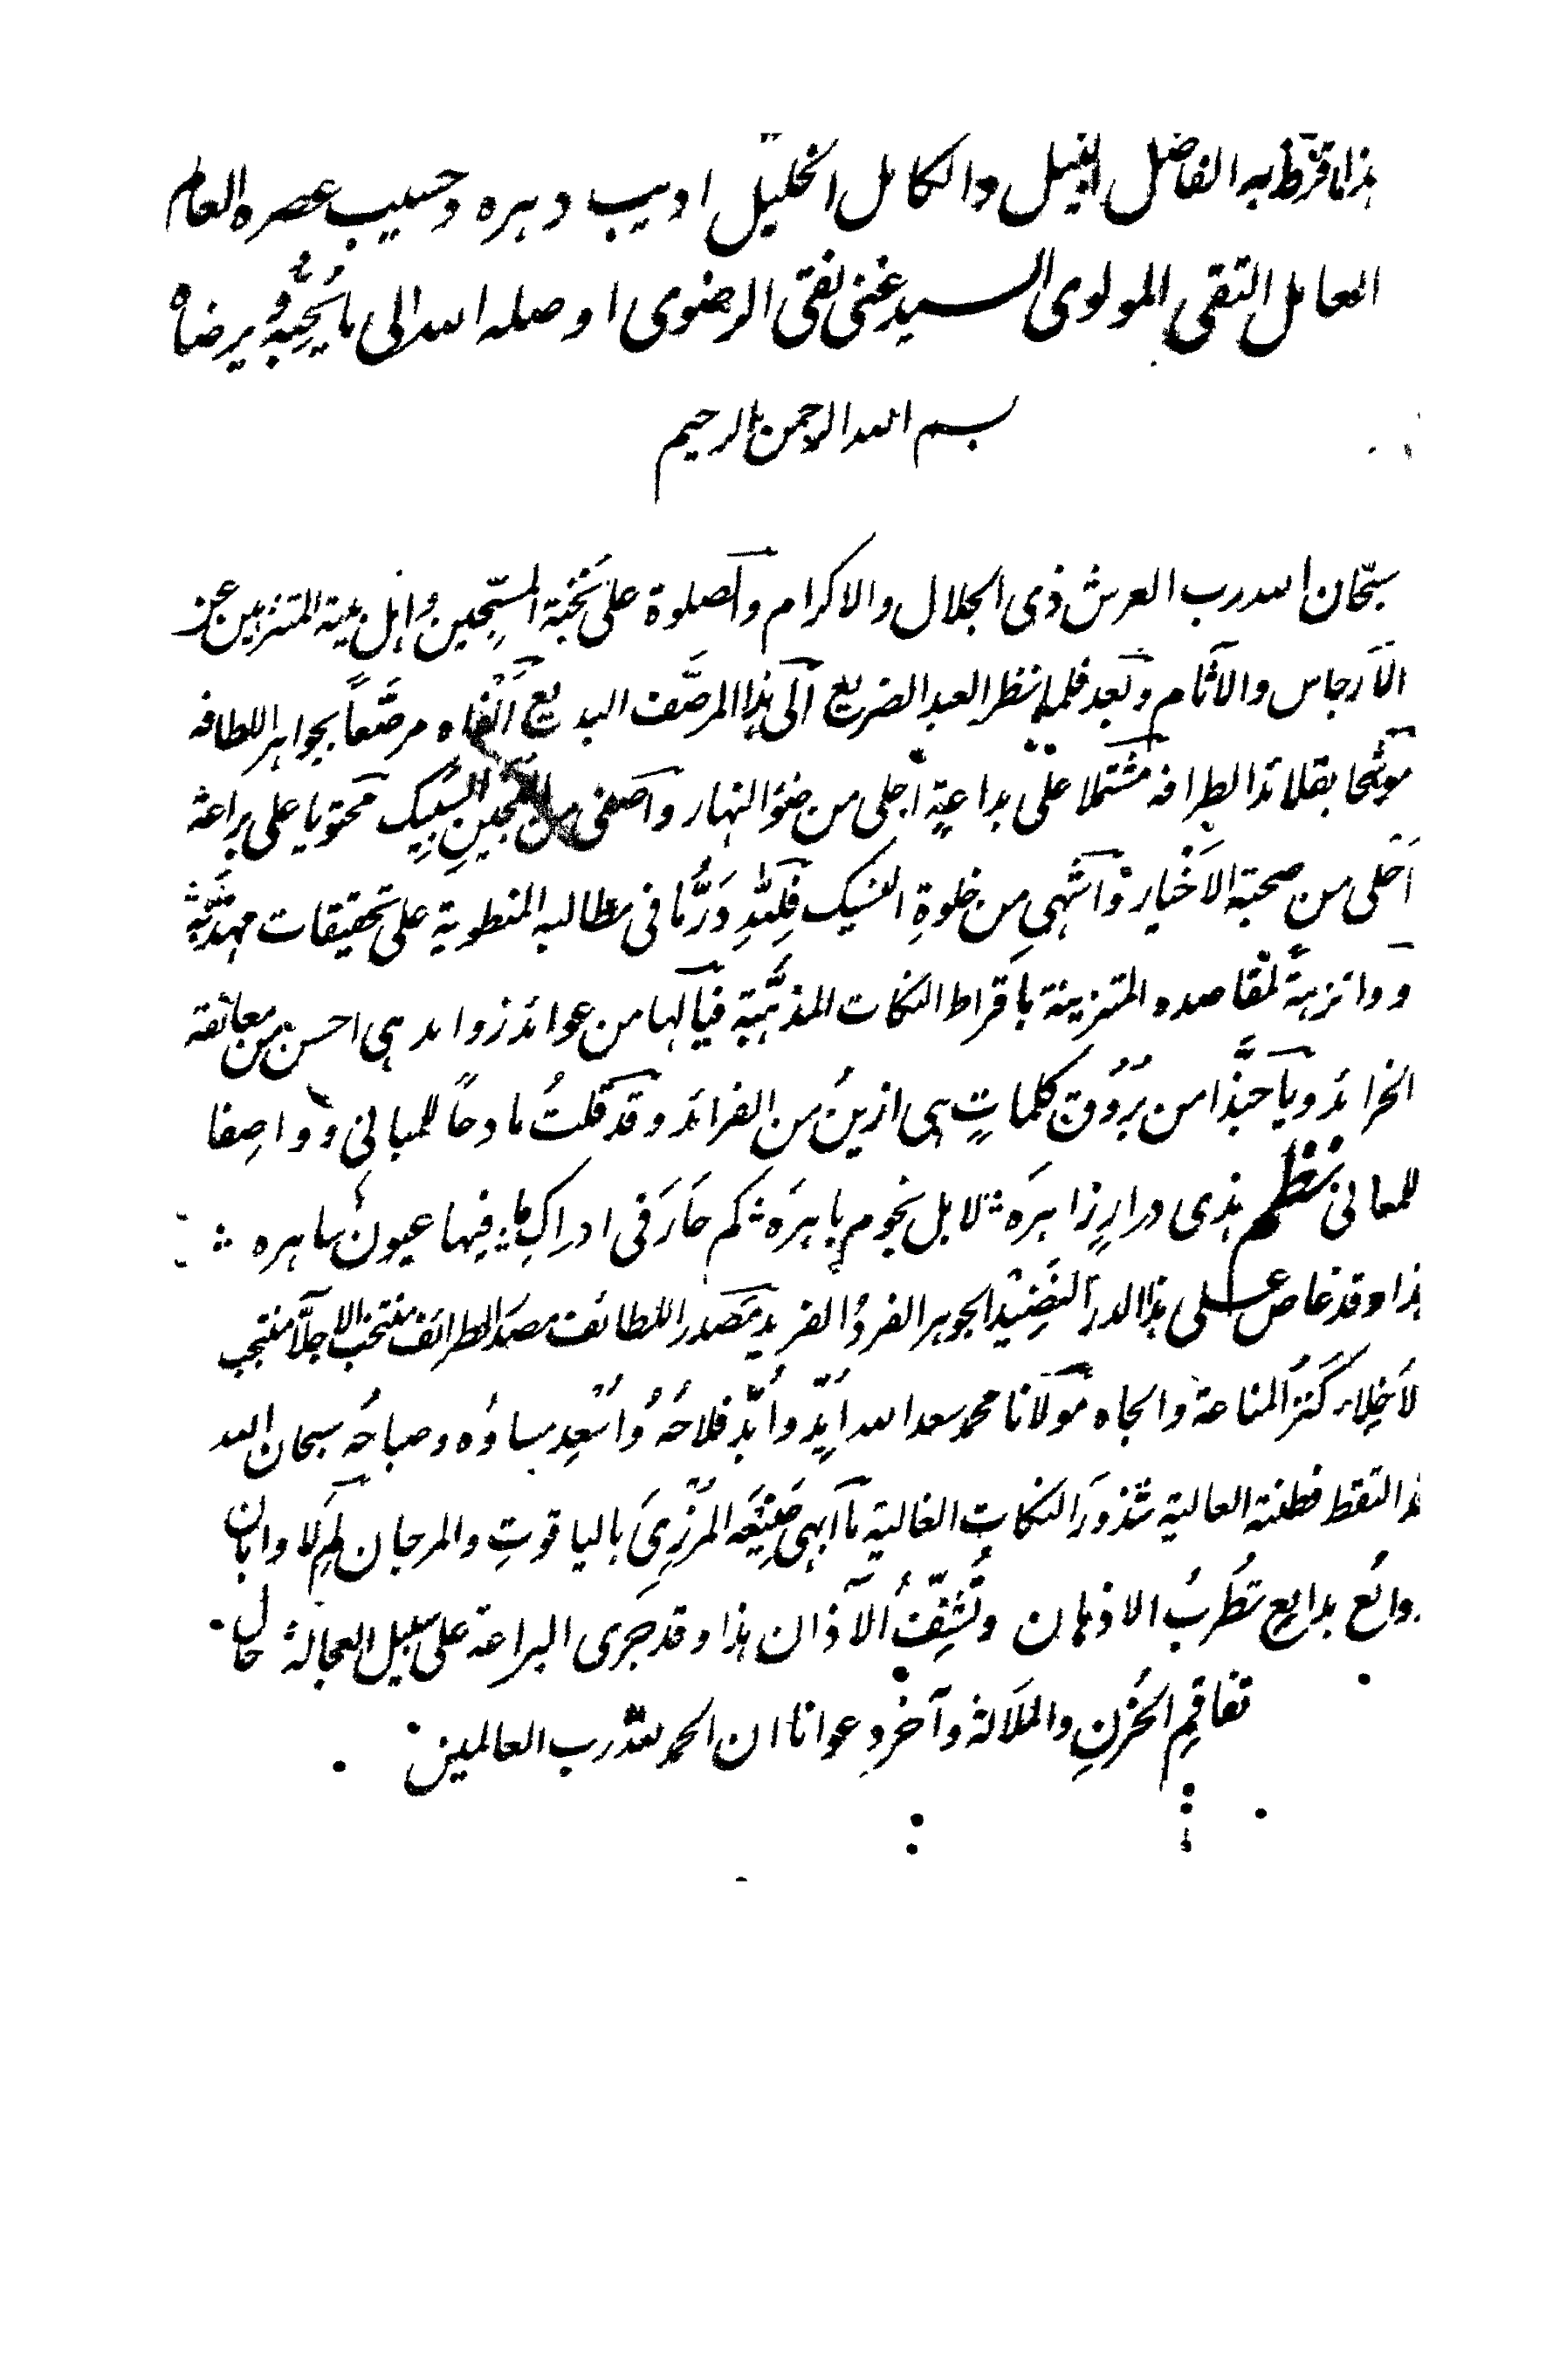 هذا ما قرّظ به الفاضل النبيل والكامل الخليل اديب دهره وحسيب عصره العالم
العامل التقى المولوى السيد غنى نقى الرضوى اوصله الله الى ما يُحِبُّهُ ويرضاه
بسم الله الرحمن الرحيم
سبّحان الله رب العرش ذى الجلال والاكرام والصلوة على نُخْبَة المسبّحين واهل بيته المتنزهين عن
الارجاس والآثام وبعد فلما نظر العبد الضريع الى هذا المرصَّف البديع الْفاه مرصَّعاً بجواهر اللطافه
موشّحا بقلائد الطرافه مشتملا على بداعةٍ اجلى من ضوء النهار واصفى من اللُّجَينِ السَّبِيك محتويا على براعة
اَحْلى من صحبة الاَخْيار واَشْهى من خلوةِ النسيك فلِلّهِ دَرُّ ما فى مطالبه المنطوية على تحقيقات مهذَّبَة
و نزهةً لمقاصده المتزينة باَقراط النكات المذهَّبَة فيا لها من عوائد زوايد هى احسن من معانقة
الخرائد ويا حبَّذا من بُرُوقِ كلماتٍ هى ازينُ من الفرائد وقد قلتُ مادحاً للمبانى وواصِفا
للمعانى نظم هذى درارٍ زاهرَه ؞ لا بل نجوم باهرَه ؞ كم حَارَ فى ادراكِ ما ؞ فيها عيون ساهره ؞
هذا وقد غاص على هذا الدر النَّضِيْد الجوهر الفرد الفريد مَصْدر اللطائف مصدر الطرائف منتخب الاجلَّآء منتجب
الاَخِلاَّء كَنزُ المناعة والجاه مولانا محمد سعد الله اُيِّدَ واُبِّدَ فلاحُهُ واُسْعِدَ مساؤه وصباحُه سبحان الله
قد التقط فطنته العالية شُذورَ النكاتِ الغالية ما ابهى صَنِيْعَه المُزْرِىَ بالياقوتِ والمرجان لِمَ لا وابان
روائع بدايع تُطْرِبُ الاذهان وتُشَنِّفُ الآذان هذا وقد جرى اليراعة على سبيل العجالة حال
تفاقمِ الحُزنِ والملَالة وآخر دعوانا ان الحمد لله رب العالمين